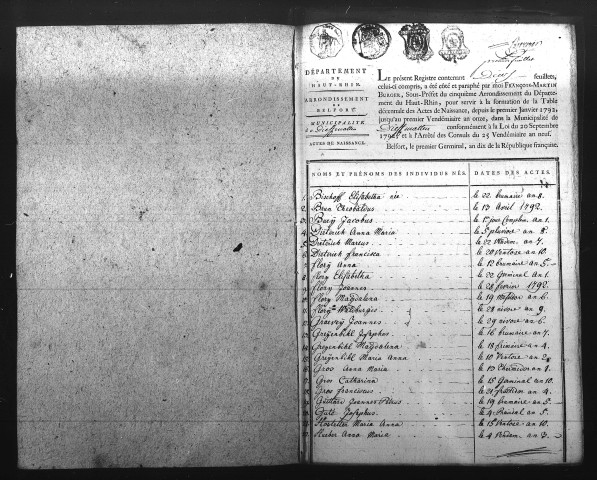 premier feuillet
DÉPARTEMENT
DU
HAUT-RHIN.
ARRONDISSEMENT
DE
BELFORT.
MUNICIPALITÉ
de Dieffmatten
ACTES DE NAISSANCE.
LE présent Registre contenant Deux feuillets,
celui-ci compris, a été coté et paraphé par moi FRANÇOIS-MARTIN
BURGER, Sous-Préfet du cinquième Arrondissement du Département
du Haut-Rhin, pour servir à la formation de la Table
décennale des Actes de Naissance, depuis le premier Janvier 1792,
jusqu'au premier Vendémiaire an onze, dans la Municipalité de
Dieffmatten conformément à la Loi du 20 Septembre
1792, et à l'Arrêté des Consuls du 25 Vendémiaire an neuf.
Belfort, le premier Germinal, an dix de la République française.
NOMS ET PRÉNOMS DES INDIVIDUS NÉS. DATES DES ACTES.
1. Bischoff Elisabetha née le 22 brumaire an 8.
2. Brun Theobaldus le 13 Avril 1792.
3. Burÿ Jacobus le 1er jour Complem. an 1.
4. Dieterich Anna Maria le 5 pluviose an 8.
5. Dieterich Marcus le 22 Vendem. an 7.
6. Dieterich francisca le 20 Ventose an 10.
7. flory Anna le 12 brumaire an 5.
8. flory Elisabetha le 22 Germinal an 1.
9. flory Joannes le 28 fevrier 1792.
10. flory Magdalena le 19 messidor an 6.
11. flory Walburgis le 28 nivose an 9.
12. Joannes le 29 nivose an 6.
13. Gregenbihl Josephus le 16 brumaire an 7.
14. Gregenbihl Magdalena le 18 frimaire an 4.
15. Gregenbihl Maria Anna le 10 Ventose an 2.
16. Gros Anna Maria le 13 Thermidor an 1.
17. Gros Catharina le 15 Germinal an 10.
18. Gros franciscus le 21 fructidor an 4.
19. Joannes Petrus le 19 brumaire an 5.
20. Josephus le 4 Prairial an 5.
21. Hostetter Maria Anna le 15 Ventose an 10.
22. Hueber Anna Maria le 4 Vendem. an 7.